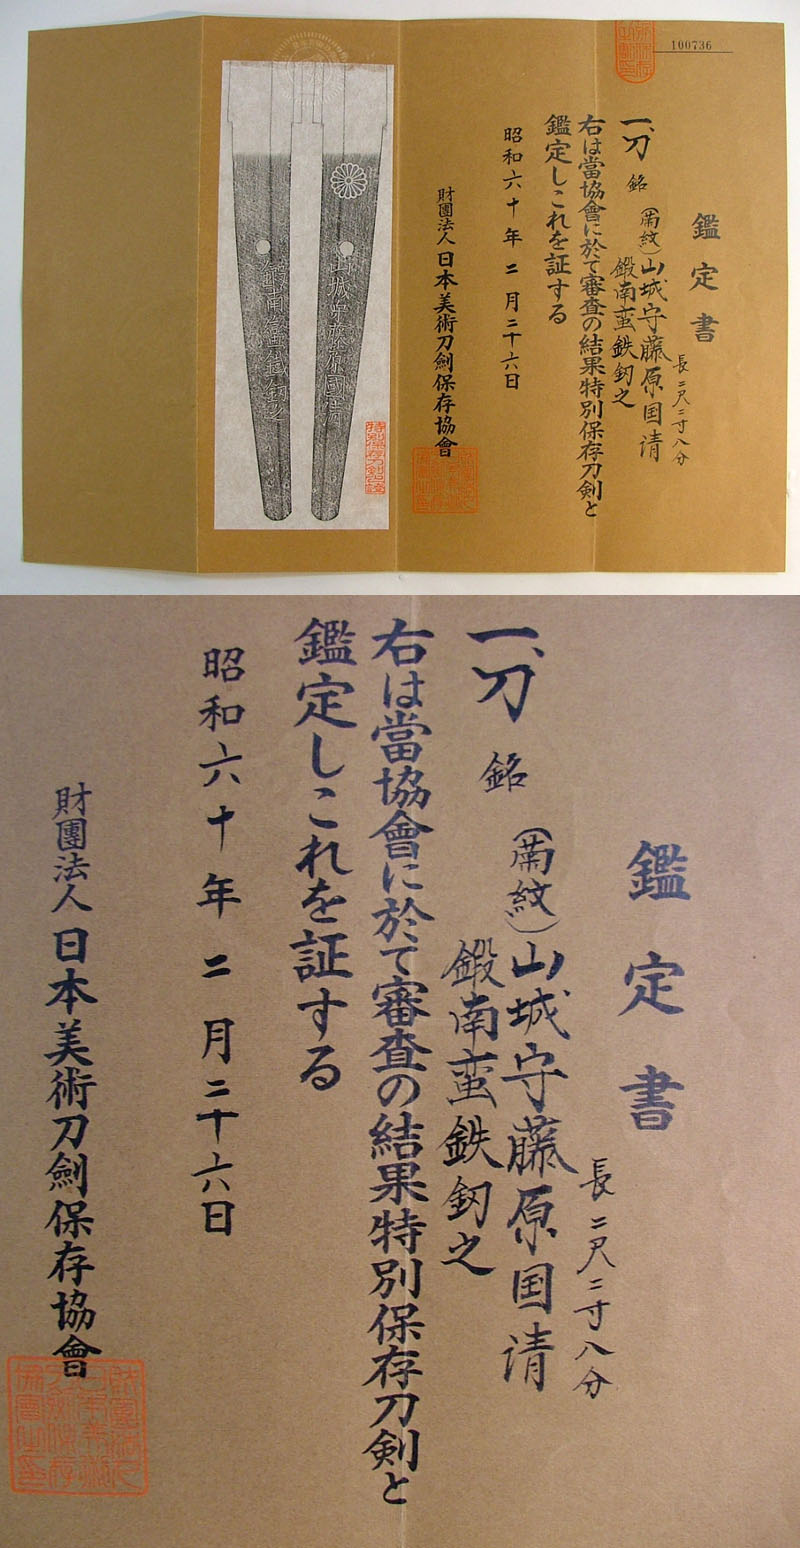 100736
鑑定書
長二尺二寸八分
一、刀 銘 (菊紋)山城守藤原国清
鍛南蛮鉄釼之
右は當協會に於て審査の結果特別保存刀剣と
鑑定しこれを証する
昭和六十年二月二十六日
財團法人日本美術刀劍保存協會
山城守藤原國清
鑑定書
長二尺二寸八分
一、刀 銘 (菊紋)山城守藤原国清
鍛南蛮鉄釼之
右は當協會に於て審査の結果特別保存刀剣と
鑑定しこれを証する
昭和六十年二月二十六日
財團法人日本美術刀劍保存協會